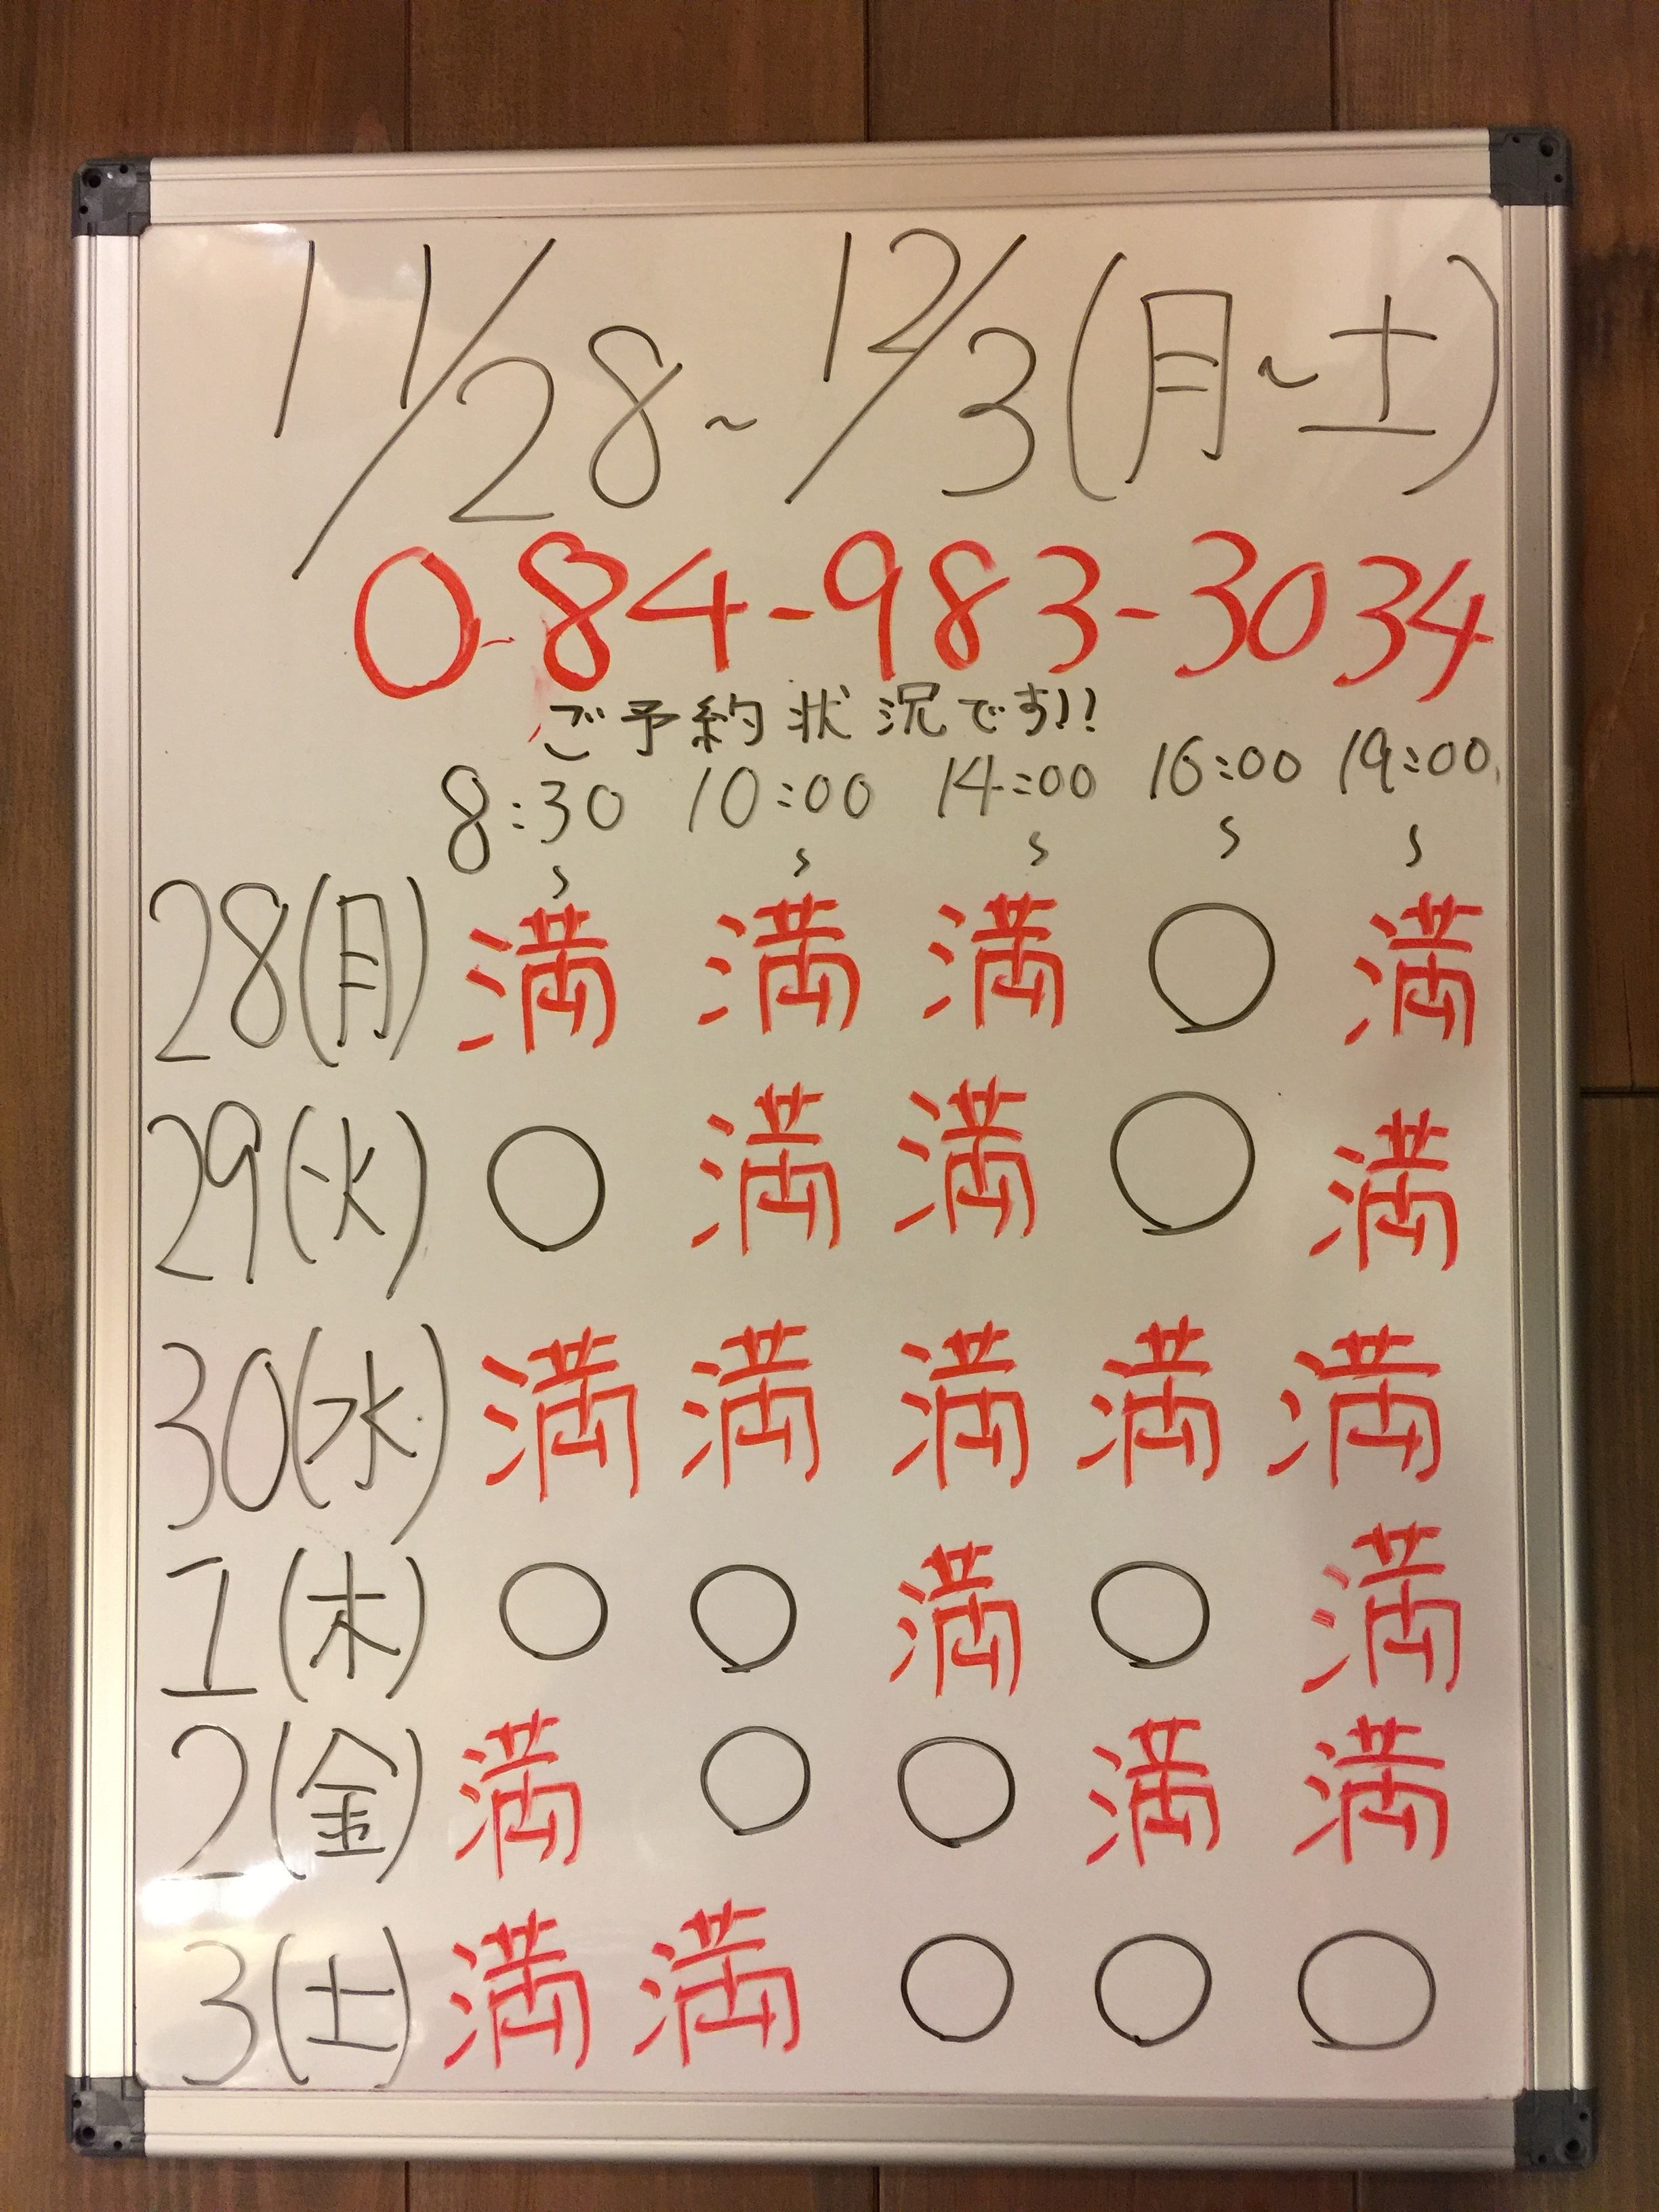 11/28~12/3(月~土)
0-84-983-3034
ご予約状況です!!
8:30~ 10:00~ 14:00~ 16:00~ 19:00~
28(月) 満 満 満 ○ 満
29(火) ○ 満 満 ○ 満
30(水) 満 満 満 満 満
1(木) ○ ○ 満 ○ 満
2(金) 満 ○ ○ 満 満
3(土) 満 満 ○ ○ ○